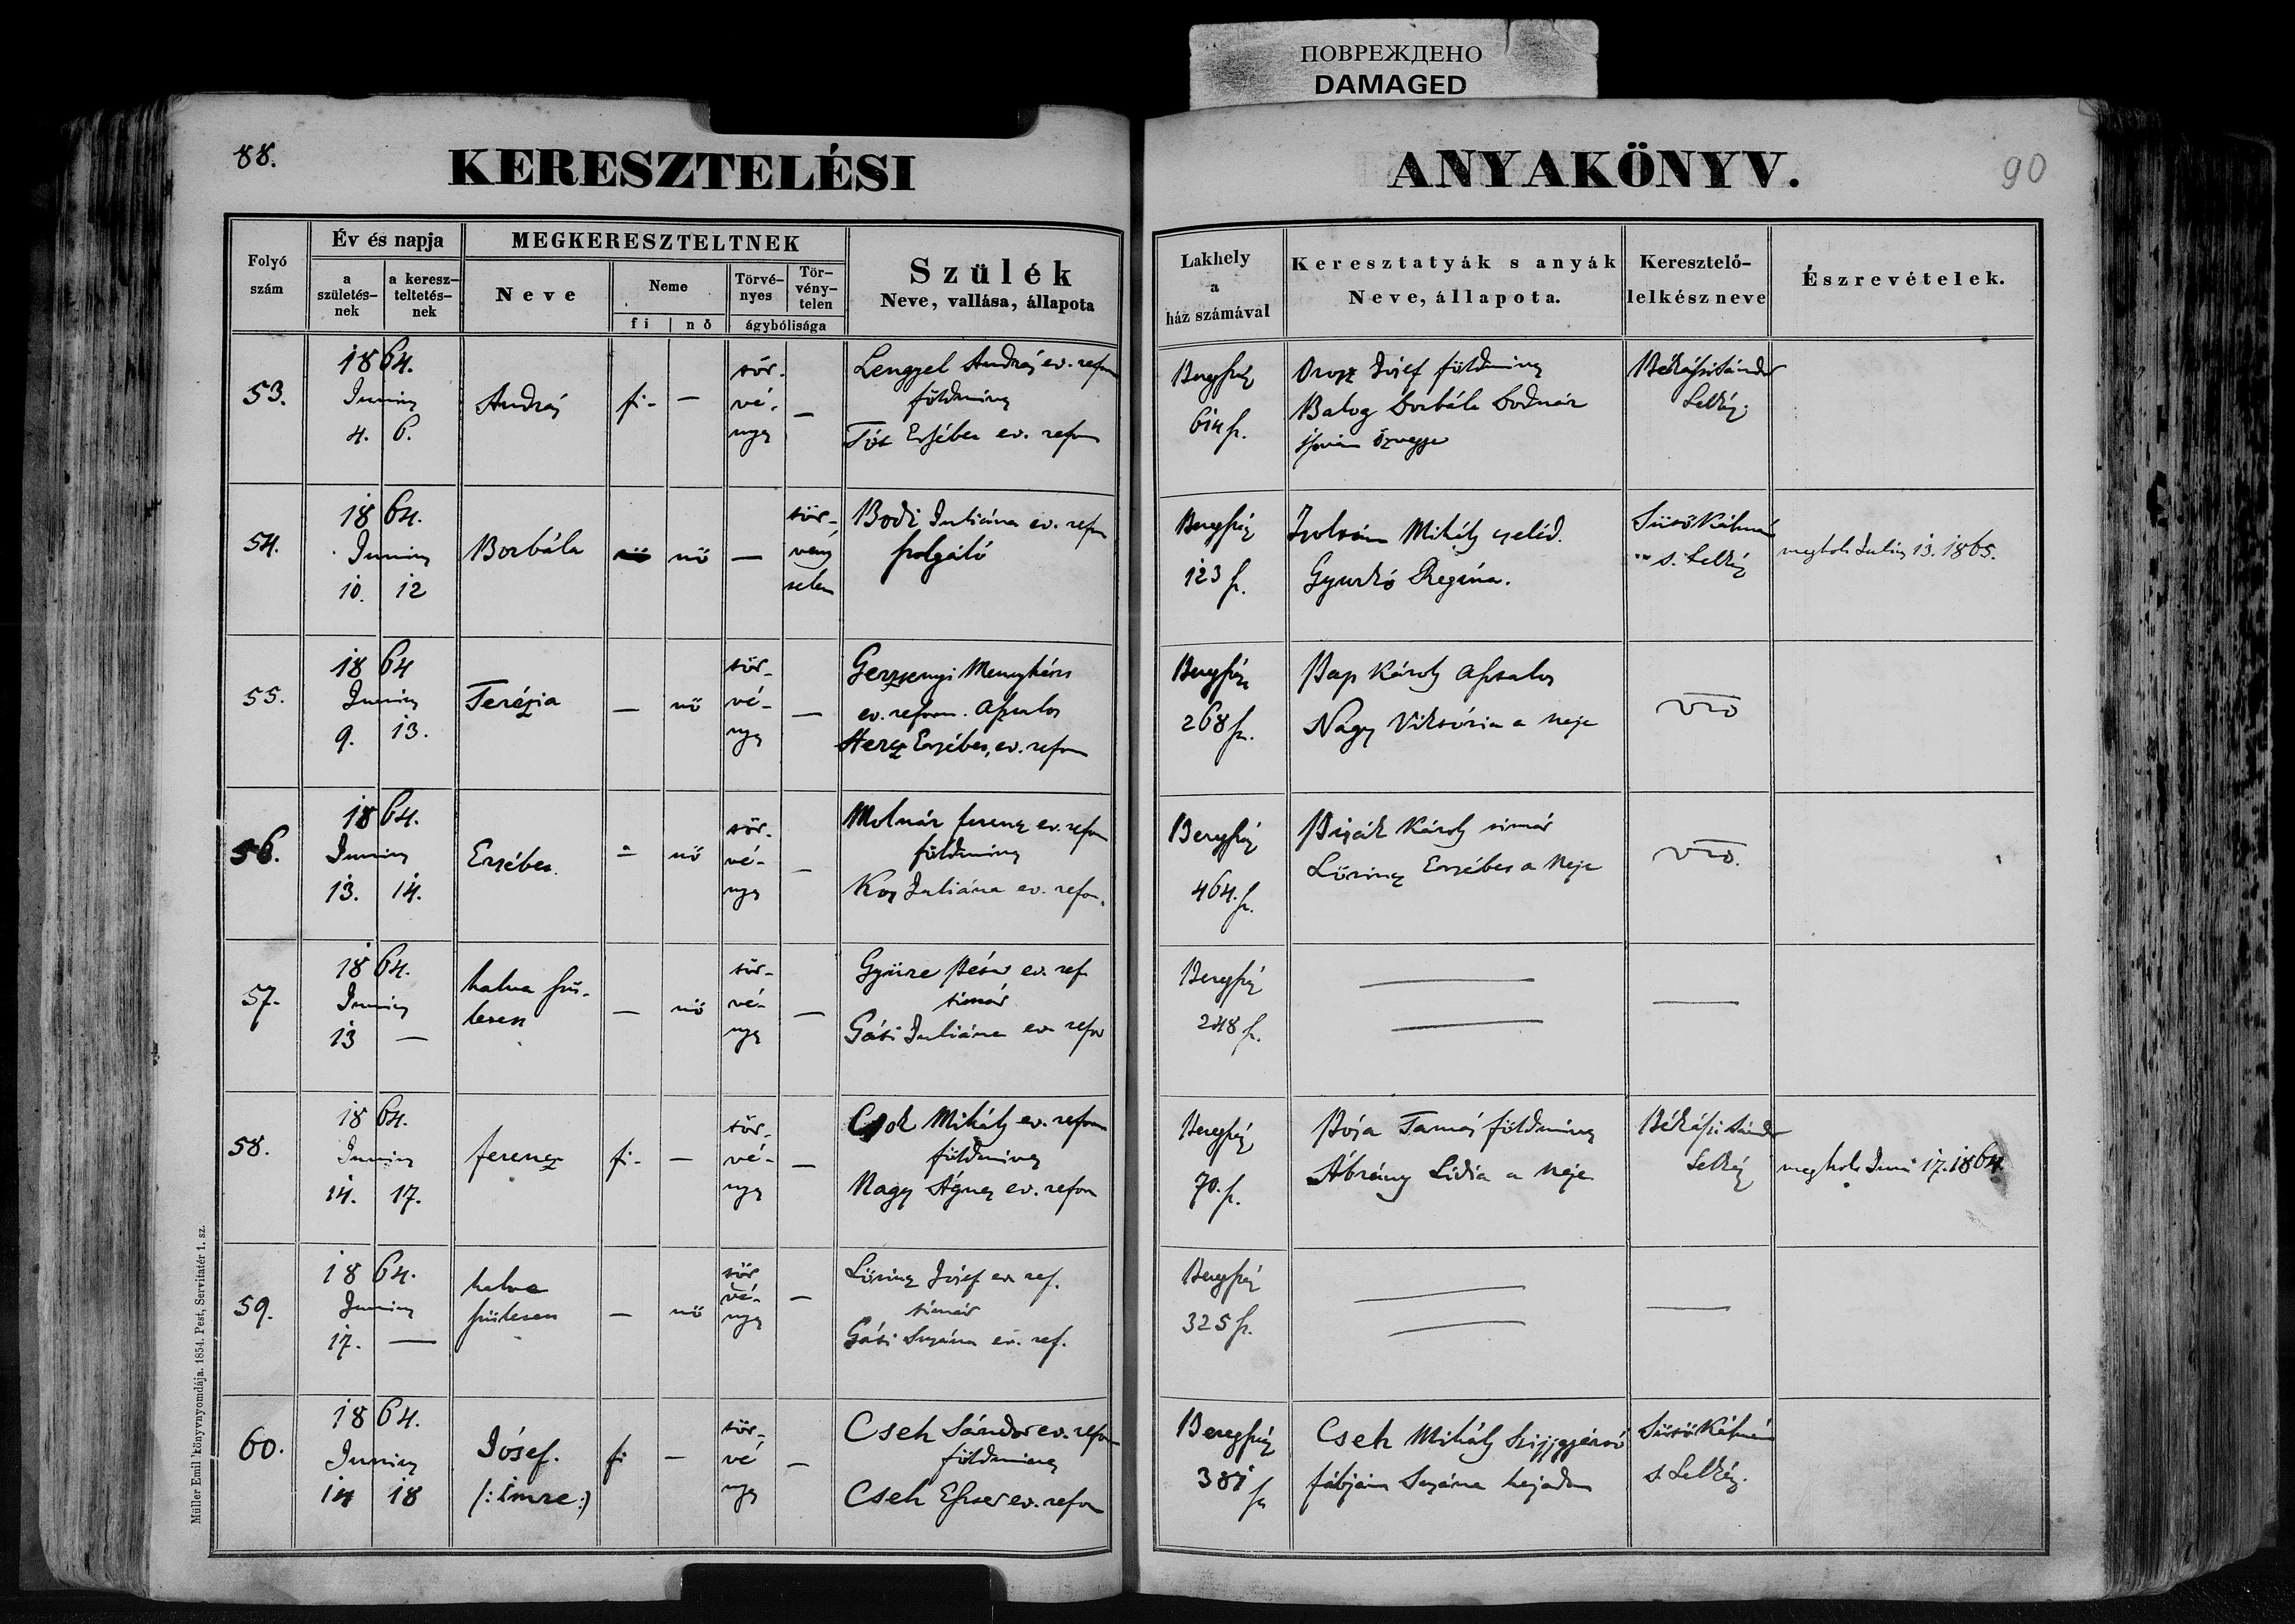 ПОВРЕЖДЕНО
DAMAGED
88.
KERESZTELÉSI
ANYAKÖNYV.
90
Folyó
szám
Év és napja
a
születés-
nek
a keresz-
teltetés-
nek
MEGKERESZTELTNEK
Neve
Neme
fi
nő
Törvé-
nyes
Tör-
vény-
telen
ágybólisága
Szülék
Neve, vallása, állapota
Lakhely
a
ház számával
Keresztatyák s anyák
Neve, állapota.
Keresztelő-
lelkész neve
Észrevételek.
53.
1864.
Junius
4. 6.
András
fi- —
tör-
vé-
nyes
—
Lengyel András ev. refor
földmives
Tót Erzsébet ev. refor
Beregszász
614 sz.
Orosz Jósef földmives
Balog Borbála Bodnár
István özvegye
Békássi Sándor
Lelkész
54.
1864.
Junius
10. 12
Borbála
nő —
tör-
vény
telen
Bodi Juliána ev. refor
szolgáló
Beregszász
123 sz.
Zsolvám Mihály cseléd.
Gyurkó Regina.
Sütő Kálmán
s. Lelkész
megholt Julius 13. 1865.
55.
1864
Junius
9. 13.
Terézia
— nő
tör-
vé-
nyes
—
Gerzsenyi Menyhért
ev. reform. Asztalos
Hercz Erzsébet, ev. refor
Beregszász
268 sz.
Pap Károly Asztalos
Nagy Viktória a neje
56.
1864.
Junius
13. 14.
Erzsébet
— nő
tör-
vé-
nyes
—
Molnár ferencz ev. refor
földmives
Kos Juliána ev. refor.
Beregszász
464. sz.
Prizsák Károly timár
Lőrincz Erzsébet a neje
57.
1864.
Junius
13 —
halva szü-
letett
— nő
tör-
vé-
nyes
—
Gyüre Péter ev. ref
timár
Gáti Juliána ev refor
Beregszász
248 sz.
58.
1864.
Junius
14. 17.
ferencz
fi- —
tör-
vé-
nyes
—
Csok Mihály ev. reform
földmives
Nagy Ágnes ev. refor
Beregszász
70. sz.
Pósa Tamás földmives
Ábrány Lidia a neje
Békássi Sándor
Lelkész
megholt Juni 17. 1864.
59.
1864.
Junius
17. —
halva
született
— nő
tör
vé-
nyes
—
Lőrincz Jósef ev ref.
timár
Gáti Susána ev. ref.
Beregszász
325 sz.
60.
1864.
Junius
14 18
Jósef.
(: Imre :)
fi —
tör-
vé
nyes
—
Cseh Sándor ev. refor
földmives
Cseh Eszter ev. refor
Beregszász
381 sz
Cseh Mihály Szijjgyártó
fábján Susána hajadon
Sütő Kálmán
s. Lelkész.
Müller Emil könyvnyomdája. 1854. Pest, Servitatér 1. sz.